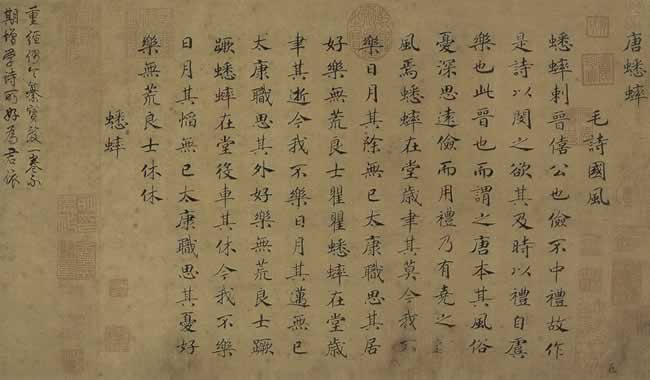 唐蟋蟀
毛詩國風
蟋蟀刺晉僖公也儉不中禮故作
是詩以閔之欲其及時以禮自虞
樂也此晉也而謂之唐本其風俗
憂深思遠儉而用禮乃有堯之
風焉蟋蟀在堂歲聿其莫今我不
樂日月其除無已太康職思其居
好樂無荒良士瞿瞿蟋蟀在堂歲
聿其逝今我不樂日月其邁無已
太康職思其外好樂無荒良士蹶
蹶蟋蟀在堂役車其休今我不樂
日月其慆無已太康職思其憂好
樂無荒良士休休
蟋蟀
重經一卷
期增學詩所好為君依